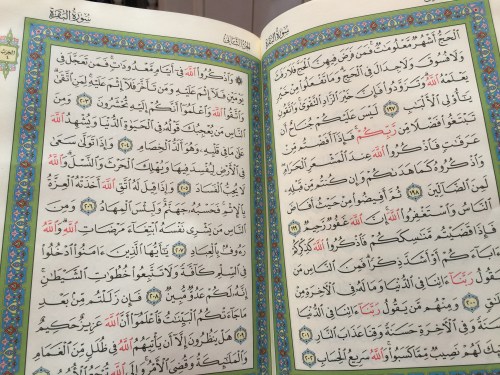 سُورَةُ البَقَرَةِ
الْحَجُّ أَشْهُرٌ مَّعْلُومَٰتٌ فَمَن فَرَضَ فِيهِنَّ الْحَجَّ فَلَا رَفَثَ
وَلَا فُسُوقَ وَلَا جِدَالَ فِي الْحَجِّ وَمَا تَفْعَلُوا مِنْ خَيْرٍ
يَعْلَمْهُ اللَّهُ وَتَزَوَّدُوا فَإِنَّ خَيْرَ الزَّادِ التَّقْوَىٰ وَاتَّقُونِ
يَٰأُولِي الْأَلْبَٰبِ ١٩٧ لَيْسَ عَلَيْكُمْ جُنَاحٌ أَن
تَبْتَغُوا فَضْلًا مِّن رَّبِّكُمْ فَإِذَا أَفَضْتُم مِّنْ
عَرَفَٰتٍ فَاذْكُرُوا اللَّهَ عِندَ الْمَشْعَرِ الْحَرَامِ
وَاذْكُرُوهُ كَمَا هَدَىٰكُمْ وَإِن كُنتُم مِّن قَبْلِهِ
لَمِنَ الضَّالِّينَ ١٩٨ ثُمَّ أَفِيضُوا مِنْ حَيْثُ أَفَاضَ
النَّاسُ وَاسْتَغْفِرُوا اللَّهَ إِنَّ اللَّهَ غَفُورٌ رَّحِيمٌ ١٩٩
فَإِذَا قَضَيْتُم مَّنَٰسِكَكُمْ فَاذْكُرُوا اللَّهَ كَذِكْرِكُمْ
ءَابَاءَكُمْ أَوْ أَشَدَّ ذِكْرًا فَمِنَ النَّاسِ مَن
يَقُولُ رَبَّنَا ءَاتِنَا فِي الدُّنْيَا وَمَا لَهُ فِي الْءَاخِرَةِ مِنْ
٢٠٠ وَمِنْهُم مَّن يَقُولُ رَبَّنَا ءَاتِنَا فِي الدُّنْيَا
وَفِي الْءَاخِرَةِ حَسَنَةً وَقِنَا عَذَابَ النَّارِ ٢٠١
لَهُمْ نَصِيبٌ مِّمَّا كَسَبُوا وَاللَّهُ سَرِيعُ الْحِسَابِ ٢٠٢
سُورَةُ البَقَرَةِ
الجُزْءُ الثَّانِي
وَاذْكُرُوا اللَّهَ فِي أَيَّامٍ مَّعْدُودَٰتٍ فَمَن تَعَجَّلَ فِي
يَوْمَيْنِ فَلَا إِثْمَ عَلَيْهِ وَمَن تَأَخَّرَ فَلَا إِثْمَ عَلَيْهِ لِمَنِ اتَّقَىٰ
وَاتَّقُوا اللَّهَ وَاعْلَمُوا أَنَّكُمْ إِلَيْهِ تُحْشَرُونَ ٢٠٣ وَمِنَ
النَّاسِ مَن يُعْجِبُكَ قَوْلُهُ فِي الْحَيَوٰةِ الدُّنْيَا وَيُشْهِدُ اللَّهَ
عَلَىٰ مَا فِي قَلْبِهِ وَهُوَ أَلَدُّ الْخِصَامِ ٢٠٤ وَإِذَا تَوَلَّىٰ سَعَىٰ
فِي الْأَرْضِ لِيُفْسِدَ فِيهَا وَيُهْلِكَ الْحَرْثَ وَالنَّسْلَ وَاللَّهُ
لَا يُحِبُّ الْفَسَادَ ٢٠٥ وَإِذَا قِيلَ لَهُ اتَّقِ اللَّهَ أَخَذَتْهُ الْعِزَّةُ
بِالْإِثْمِ فَحَسْبُهُ جَهَنَّمُ وَلَبِئْسَ الْمِهَادُ ٢٠٦ وَمِنَ
النَّاسِ مَن يَشْرِي نَفْسَهُ ابْتِغَاءَ مَرْضَاتِ اللَّهِ وَاللَّهُ
رَءُوفٌ بِالْعِبَادِ ٢٠٧ يَٰأَيُّهَا الَّذِينَ ءَامَنُوا ادْخُلُوا
فِي السِّلْمِ كَافَّةً وَلَا تَتَّبِعُوا خُطُوَٰتِ الشَّيْطَٰنِ
إِنَّهُ لَكُمْ عَدُوٌّ مُّبِينٌ ٢٠٨ فَإِن زَلَلْتُم مِّن بَعْدِ
مَا جَاءَتْكُمُ الْبَيِّنَٰتُ فَاعْلَمُوا أَنَّ اللَّهَ عَزِيزٌ حَكِيمٌ
هَلْ يَنظُرُونَ إِلَّا أَن يَأْتِيَهُمُ اللَّهُ فِي ظُلَلٍ مِّنَ الْغَمَامِ
وَالْمَلَٰئِكَةُ وَقُضِيَ الْأَمْرُ وَإِلَى اللَّهِ تُرْجَعُ الْأُمُورُ